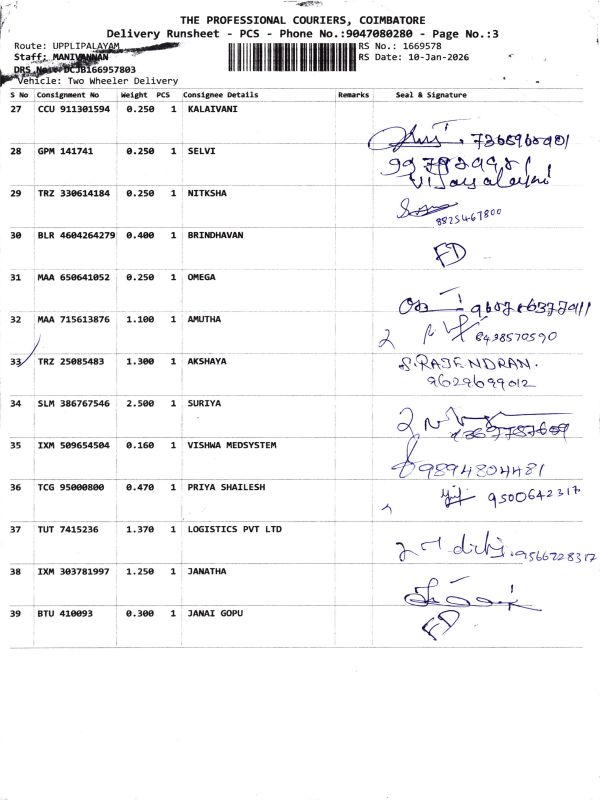 THE PROFESSIONAL COURIERS, COIMBATORE
Delivery Runsheet - PCS - Phone No.:9047080280 - Page No.:3
Route: UPPLIPALAYAM RS No.: 1669578
Staff: MANIVANNAN RS Date: 10-Jan-2026
DRS No.: DCJB166957803
Vehicle: Two Wheeler Delivery
S No Consignment No Weight PCS Consignee Details Remarks Seal & Signature
27 CCU 911301594 0.250 1 KALAIVANI
28 GPM 141741 0.250 1 SELVI
Vijayalayni
29 TRZ 330614184 0.250 1 NITKSHA
8825467800
30 BLR 4604264279 0.400 1 BRINDHAVAN
FD
31 MAA 650641052 0.250 1 OMEGA
32 MAA 715613876 1.100 1 AMUTHA
8438570590
33 TRZ 25085483 1.300 1 AKSHAYA S.RAJENDRAN.
9629699012
34 SLM 386767546 2.500 1 SURIYA
35 IXM 509654504 0.160 1 VISHWA MEDSYSTEM
9894804481
36 TCG 95000800 0.470 1 PRIYA SHAILESH
9500642317
37 TUT 7415236 1.370 1 LOGISTICS PVT LTD
9566728317
38 IXM 303781997 1.250 1 JANATHA
39 BTU 410093 0.300 1 JANAI GOPU
FD